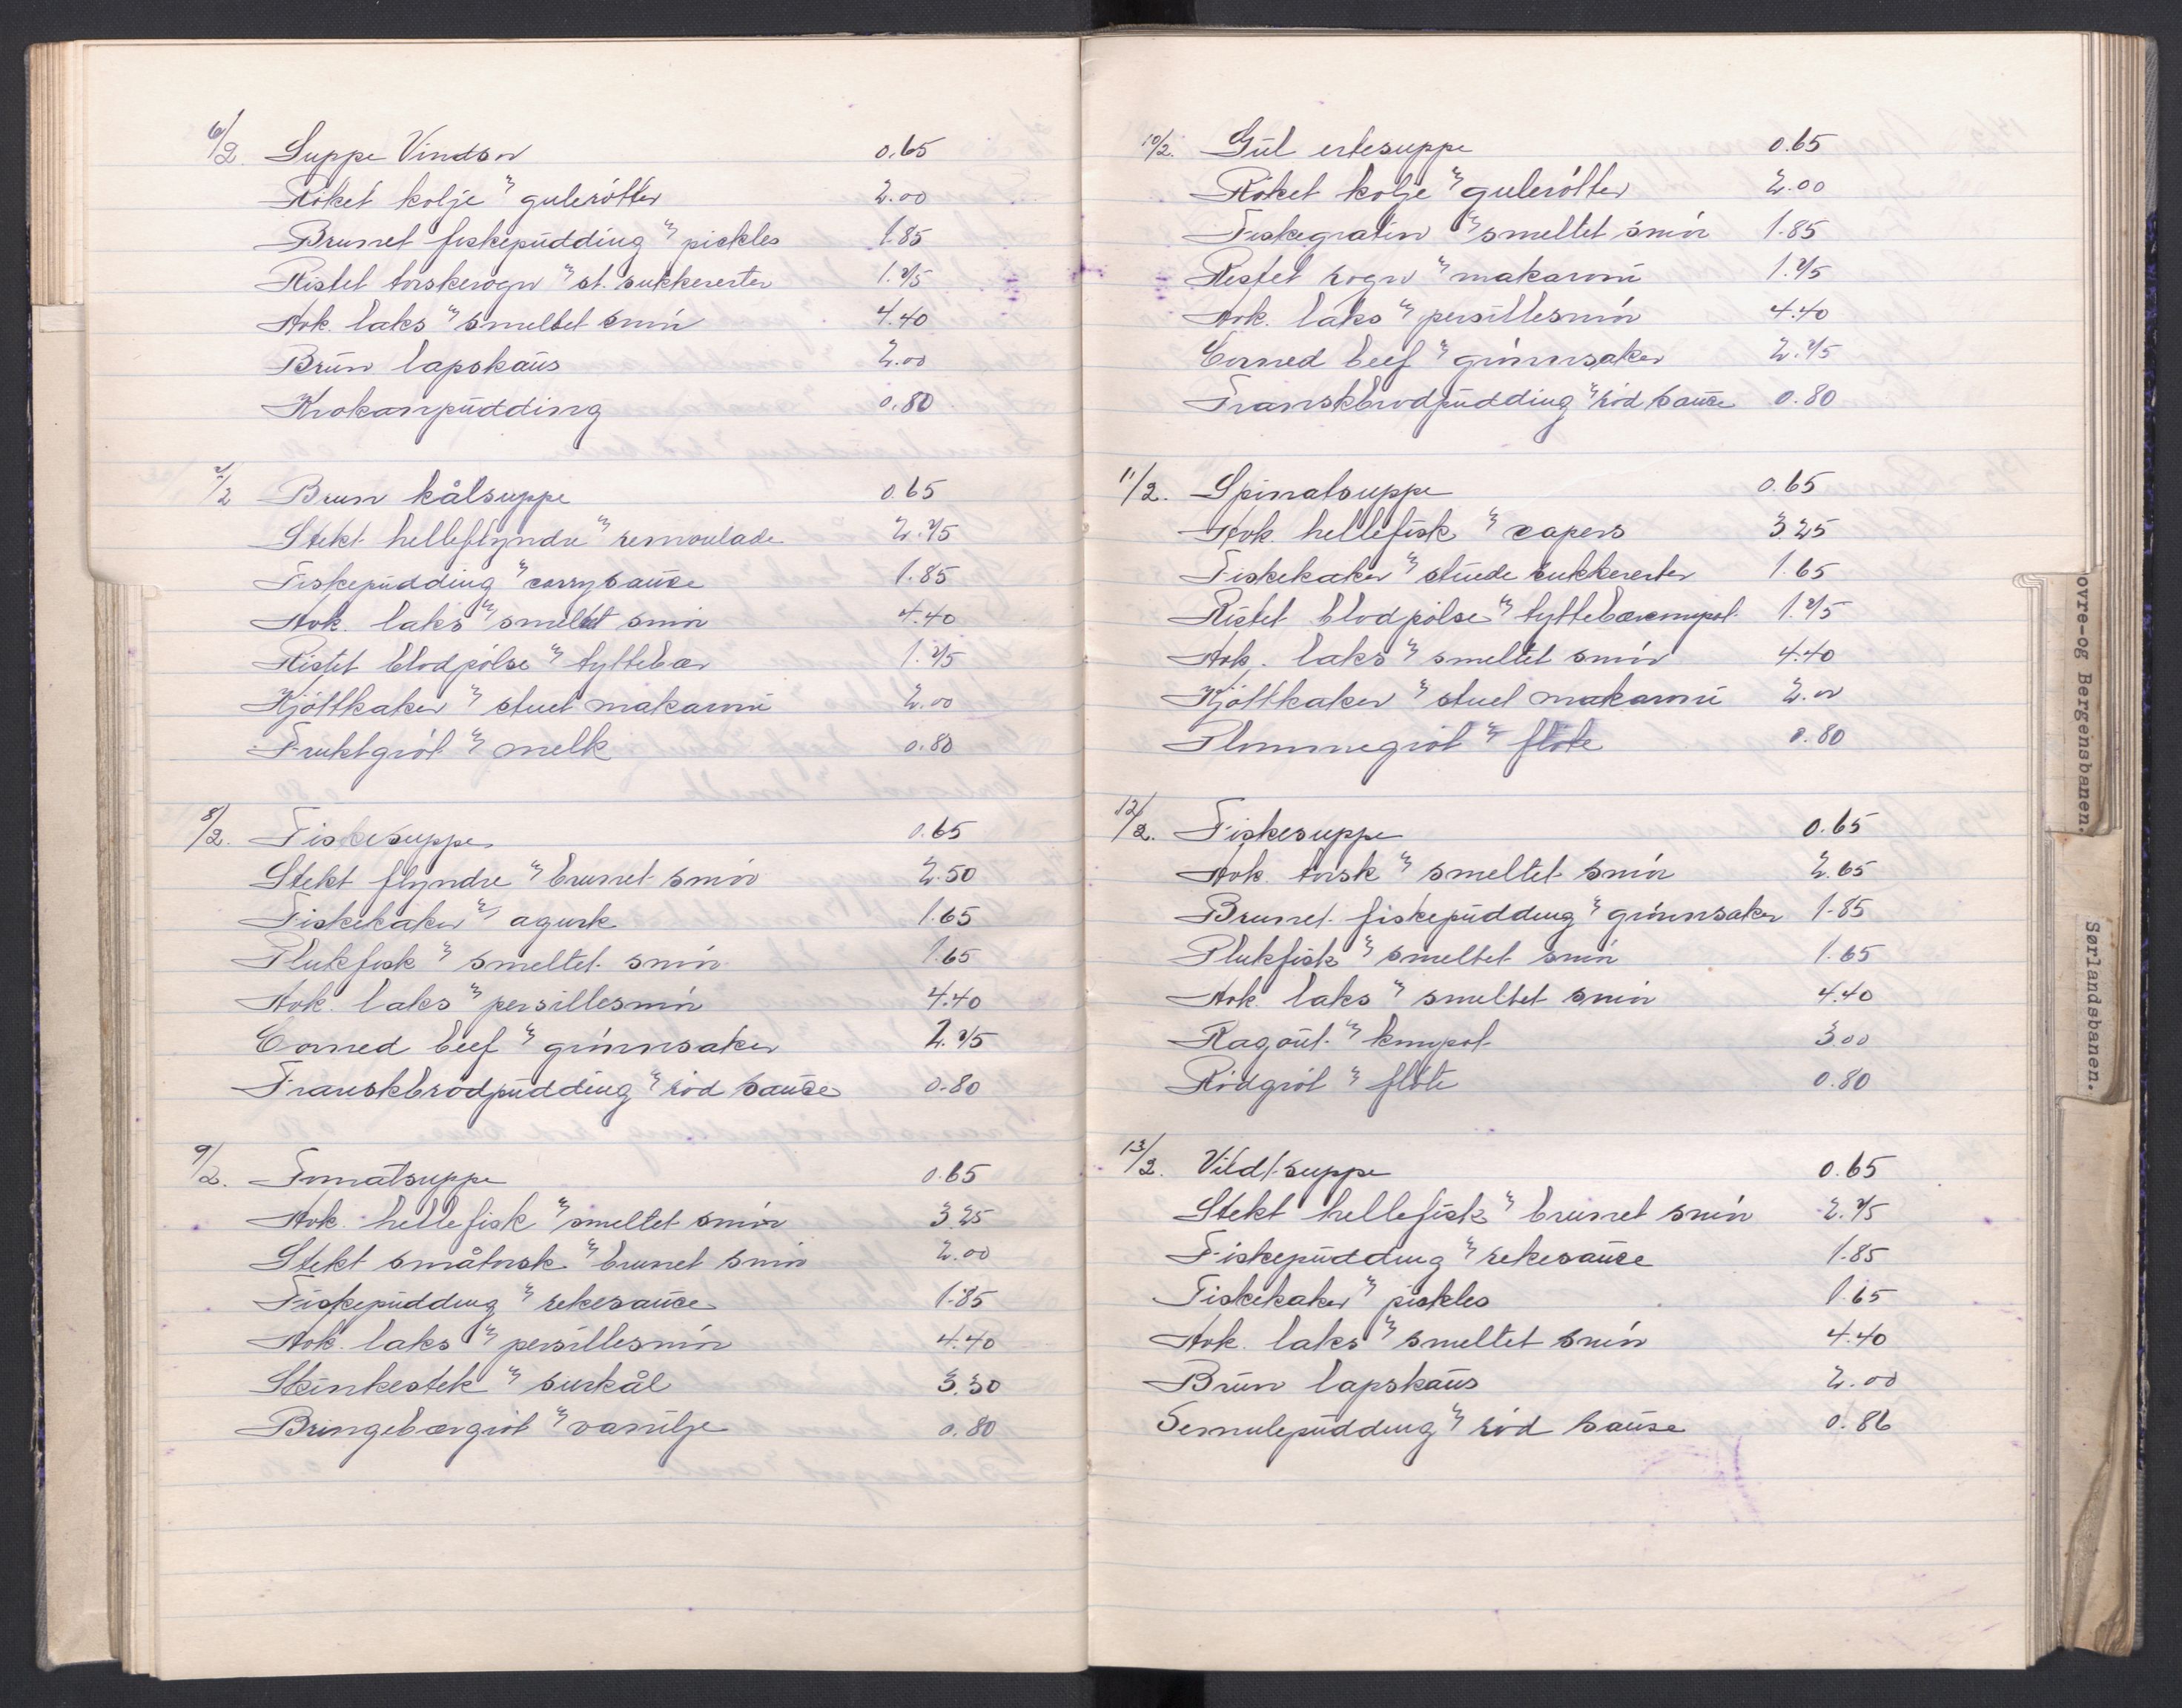 6/2. Suppe Vindsor 0.65
Röket kolje m/ gulerötter 2.00
Brunet fiskepudding m/ pickles 1.85
Ristet torskerogn m/ st. sukkererter 1.75
Kok. laks m/ smeltet smör 4.40
Brun lapskaus 2.00
Krokanpudding 0.80
7/2 Brun kålsuppe 0.65
Stekt helleflyndre m/ remoulade 2.75
Fiskepudding m/ carrysauce 1.85
Kok. laks m/ smeltet smör 4.40
Ristet blodpölse m/ tyttebær 1.75
Kjöttkaker m/ stuet makaroni 2.00
Fruktgröt m/ melk 0.80
8/2. Fiskesuppe 0.65
Stekt flyndre m/ brunet smör 2.50
Fiskekaker m/ agurk 1.65
Plukfisk m/ smeltet smör 1.65
Kok. laks m/ persillesmör 4.40
Corned beef m/ grönnsaker 2.75
Franskbrödpudding m/ röd sauce 0.80
9/2. Tomatsuppe 0.65
Kok. hellefisk m/ smeltet smör 3.25
Stekt småtorsk m/ brunet smör 2.00
Fiskepudding m/ rekesauce 1.85
Kok. laks m/ persillesmör 4.40
Skinkestek m/ surkål 3.30
Bringebærgröt m/ vanilje 0.80
10/2. Gul ertesuppe 0.65
Röket kolje m/ gulerötter 2.00
Fiskegratin m/ smeltet smör 1.85
Ristet rogn m/ makaroni 1.75
Kok. laks m/ persillesmör 4.40
Corned beef m/ grönnsaker 2.75
Franskbrödpudding m/ röd sauce 0.80
11/2. Spinatsuppe 0.65
Kok. hellefisk m/ capers 3.25
Fiskekaker m/ stuede sukkererter 1.65
Ristet blodpölse m/ tyttebærcompot 1.75
Kok. laks m/ smeltet smör 4.40
Kjöttkaker m/ stuet makaroni 2.00
Plommegröt m/ flöte 0.80
12/2. Fiskesuppe 0.65
Kok. torsk m/ smeltet smör 2.65
Brunet fiskepudding m/ grönnsaker 1.85
Plukfisk m/ smeltet smör 1.65
Kok. laks m/ smeltet smör 4.40
Ragout m/ kompot 3.00
Rödgröt m/ flöte 0.80
13/2. Vildtsuppe 0.65
Stekt hellefisk m/ brunet smör 2.75
Fiskepudding m/ rekesauce 1.85
Fiskekaker m/ pickles 1.65
Kok. laks m/ smeltet smör 4.40
Brun lapskaus 2.00
Semulepudding m/ röd sause 0.80
ovre-og Bergensbanen.
Sørlandsbanen.